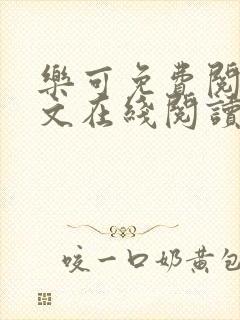 樂可免費閱
文在綫閱讀
咬一口奶黄包